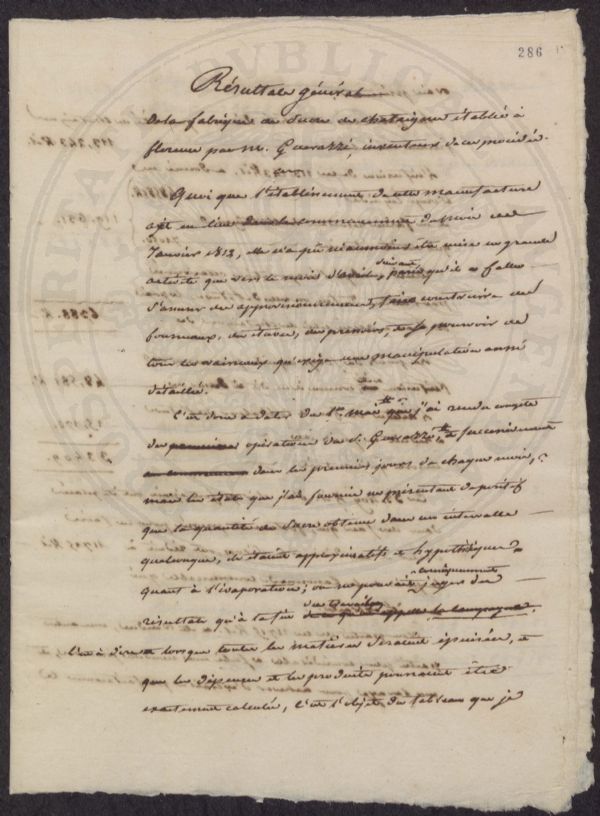 286
Résultats général
de la fabrique de Sucre de chataignes établie à
florence par Mr. Guerazzi, inventeur de ce procédé.
Quoi que l'établissement de cette manufacture
ait eu lieu dans le commencement du mois de
Janvier 1812, elle n'a pû néanmoins être mise en grande
activité que vers le mois d'avril suivant, parcequ'il a fallu
s'assurer des approvisionnements, faire construire des
fourneaux, des étuves, des pressoirs, et se pourvoir de
tous les vaisseaux qu'exige une manipulation aussi
détaillée.
C'est donc à dater du 1er mai que j'ai rendu compte
des premières opérations de Mr. Guerazzi et successivement
au commencement dans les premiers jours de chaque mois,
mais les états que j'ai fournis ne présentant de positif
que la quantité de Sucre obtenue dans un intervalle
quelconque, ils étaient approximatifs et hypothétiques
quant à l'évaporation; on ne pouvait conséquemment juger du
résultat qu'à la fin des travaux de ce qu'on appelle la campagne,
c'est à dire lorsque toutes les matières seraient épuisées, et
que les dépenses et les produits pourraient être
exactement calculés, c'est l'objet du tableau que je